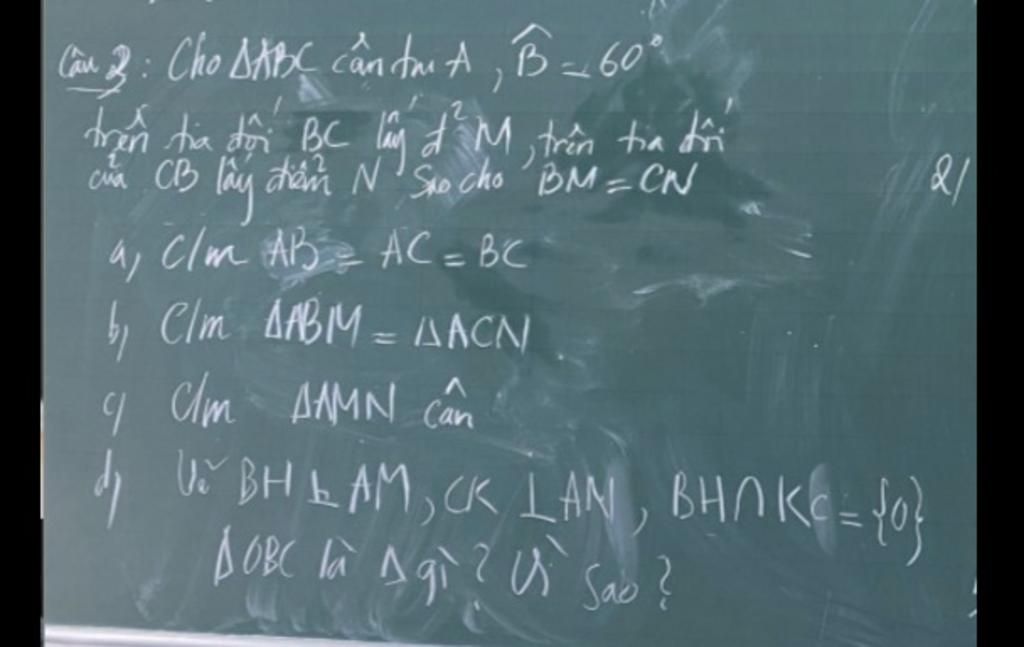 Câu 2: Cho ΔABC cân tại A, B̂ = 60°
trên tia đối BC lấy đ² M, trên tia đối
của CB lấy điểm N sao cho BM = CN
2/
a, C/m AB = AC = BC
b, C/m ΔABM = ΔACN
c, C/m ΔAMN cân
d, Vẽ BH ⊥ AM, CK ⊥ AN, BH ∩ KC = {O}
ΔOBC là Δ gì? Vì sao?